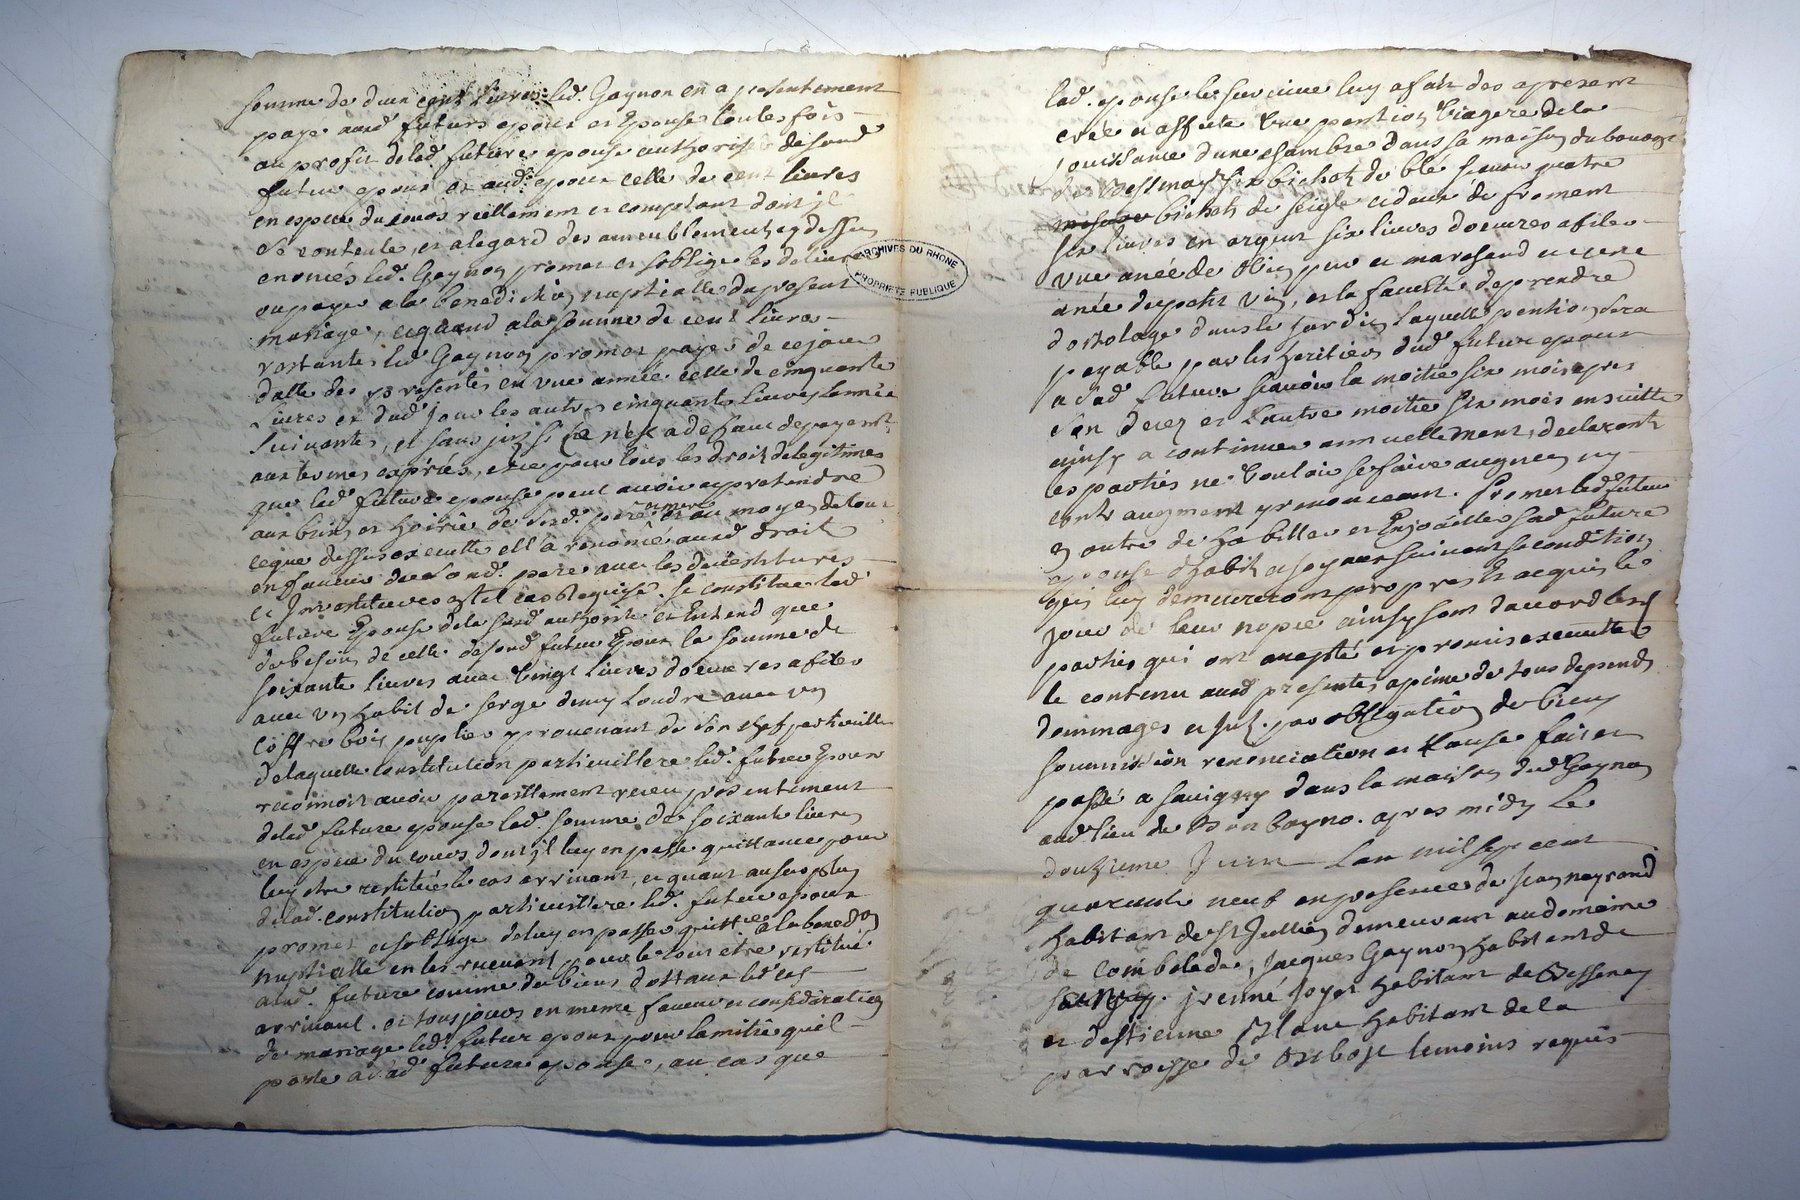 somme de deux cent livres led. Gaynon en a presentement
payé aud. futurs epoux et Epouse toutes fois
au profit delad. future epouse authorisée desond
futur epoux et aud. epoux celle de cent livres
en espece du cours reellement et comptant dont jl
se contente, et alegard des ameublements cy dessus
enoncés led. Gaynon promet et soblige les delivrer
ou payer a la benediction nuptialle du present
mariage, et quand ala somme de cent livres
restantes led Gaynon promet payer de ce jour
datte des presentes en une année celle de cinquante
livres et dud. jour les autres cinquante livres lannée
suivante, et sans jnt. si ce nest a deffaut de payement
aux termes exprimés, et ce pour tous les droits de legitimes
que lad. future epouse peut avoir et pretendre
aux biens et hoirie de sond. pere et mere et au moyen de tout
ce que dessus execuitté ell a renoncé aud. droits
en faveur de sond. pere avec les devestitures
et Jnvestitures stil cas Requise. Se constitue lad.
future Epouse dela susd. authorité et Entend que
de besoin de celle desond futur Epoux la somme de
soixante livres avec vingt livres doeuvres a filer
avec un habit de serge demy Londre avec un
coffre bois peuplier provenant de son chef particuillier
delaquelle constitution particuilliere led. futur Epoux
reconnoit avoir pareillement receu presentement
delad. future epouse lad. somme de soixante livres
en espece du cours dont jl luy en passe quittance pour
luy etre restituée le cas arrivant, et quant au surplus
delad. constitution particuilliere led. futur epoux
promet et soblige deluy en passer quittce. ala bened.on
nuptialle en les recevant pour le tout etre restitué
alad. future comme des biens dottaux led. cas
arrivant. et tousjours en meme faveur et consideration
de mariage led. futur epoux pour lamitié quil
porte a lad. future epouse, au cas que
lad. epouse le survive luy a fait des apresent
crée et affecte une pention viagere dela
jouissance dune chambre dans sa maison du bourg
de Bessenay six bichets de blé scavoir quatre
bichets de seigle et deux de froment
six livres en argent six livres doeuvres a filer
une anée de vin pur et marchand et une
anée de petit vin, et la faculté de prendre
dortolage dans le jardin laquelle pention sera
payable par les heritiers dud. futur epoux
a lad. future scavoir la moitié six mois apres
son decez et lautre moitié six mois ensuitte
ainsy a continuer annuellement, declarant
les parties ne vouloir se faire aucun ny
contr augment ny monceaux. Promet led. futur
en outre de habiller et Enjoailler sad. future
epouse dhabits et joyaux suivant sa condition
qui luy demeureront propres et acquis le
jour de leur nopce ainsy sont daccord lesd.
parties qui ont accepté et promis execuitter
le contenu aud. presentes a peine de tous depends
dommages et jnt. par obligation de biens
soumission renonciation et Clause fait et
passé a savigny dans la maison dud. Gaynon
aud. lieu de apres midy le
douzieme Juin Lan mil sept cent
quarante neuf en presences de jean neyrand
habitant de St Jullien demeurant au domaine
de Combelande, Jacques Gaynon habitant de
Savigny. jrenné joyet habitant de Bessenay
et destienne Blanc habitant dela
parroisse de temoins requis
ARCHIVES DU RHONE
PROPRIÉTÉ PUBLIQUE